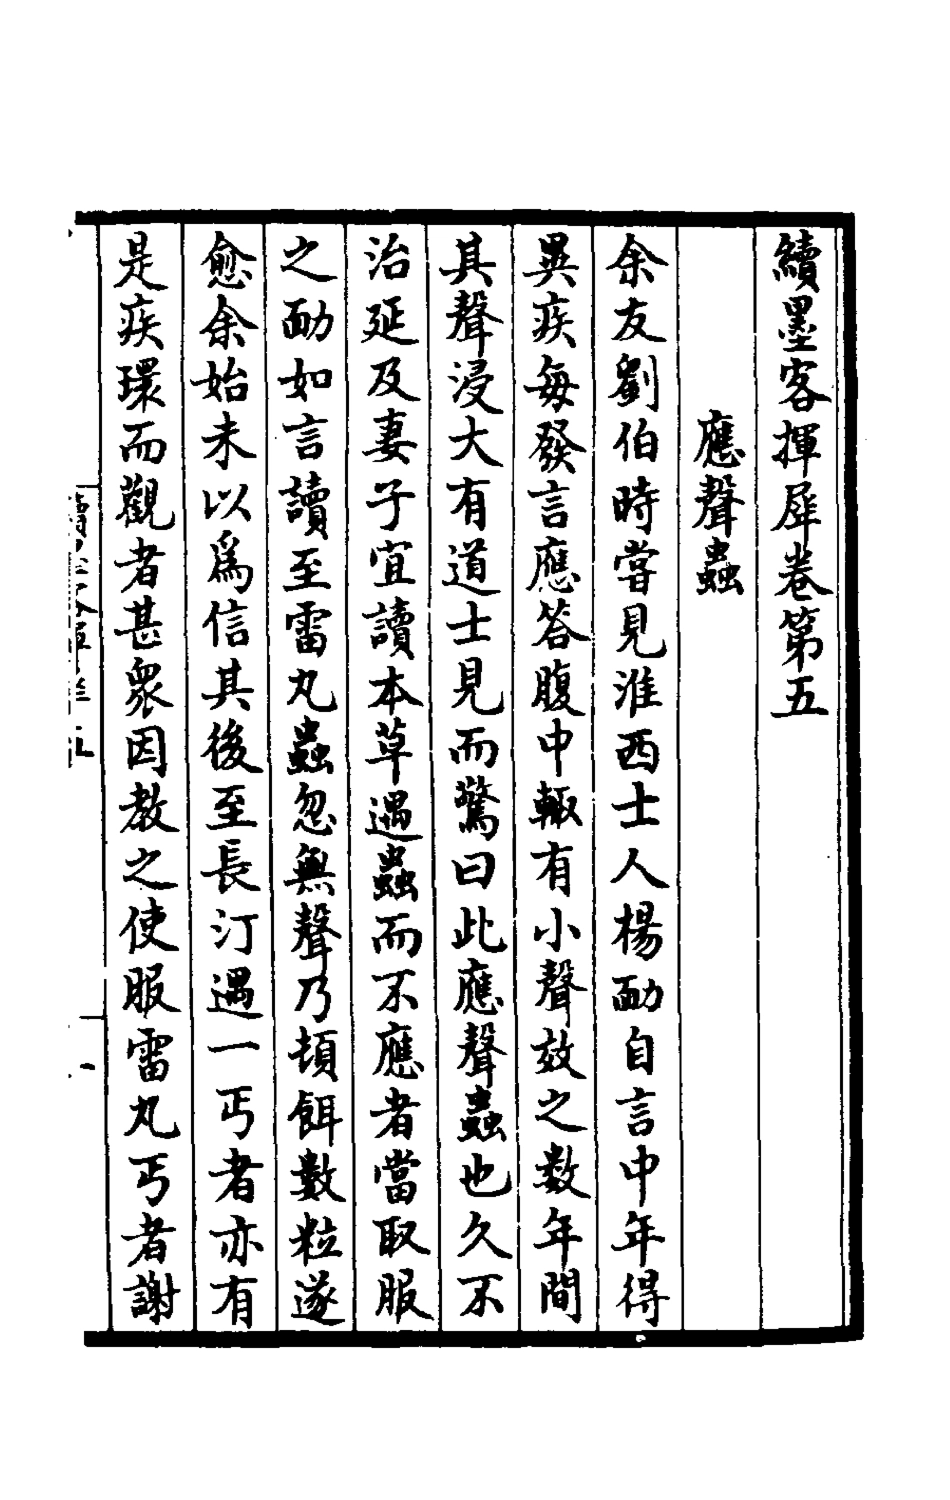 續墨客揮犀卷第五
應聲蟲
余友劉伯時嘗見淮西士人楊勔自言中年得
異疾每發言應答腹中輙有小聲效之数年間
其聲浸大有道士見而驚曰此應聲蟲也久不
治延及妻子宜讀本草遇蟲而不應者當取服
之勔如言讀至雷丸蟲忽無聲乃頓餌數粒遂
愈余始未以爲信其後至長汀遇一丐者亦有
是疾環而觀者甚衆因教之使服雷丸丐者謝